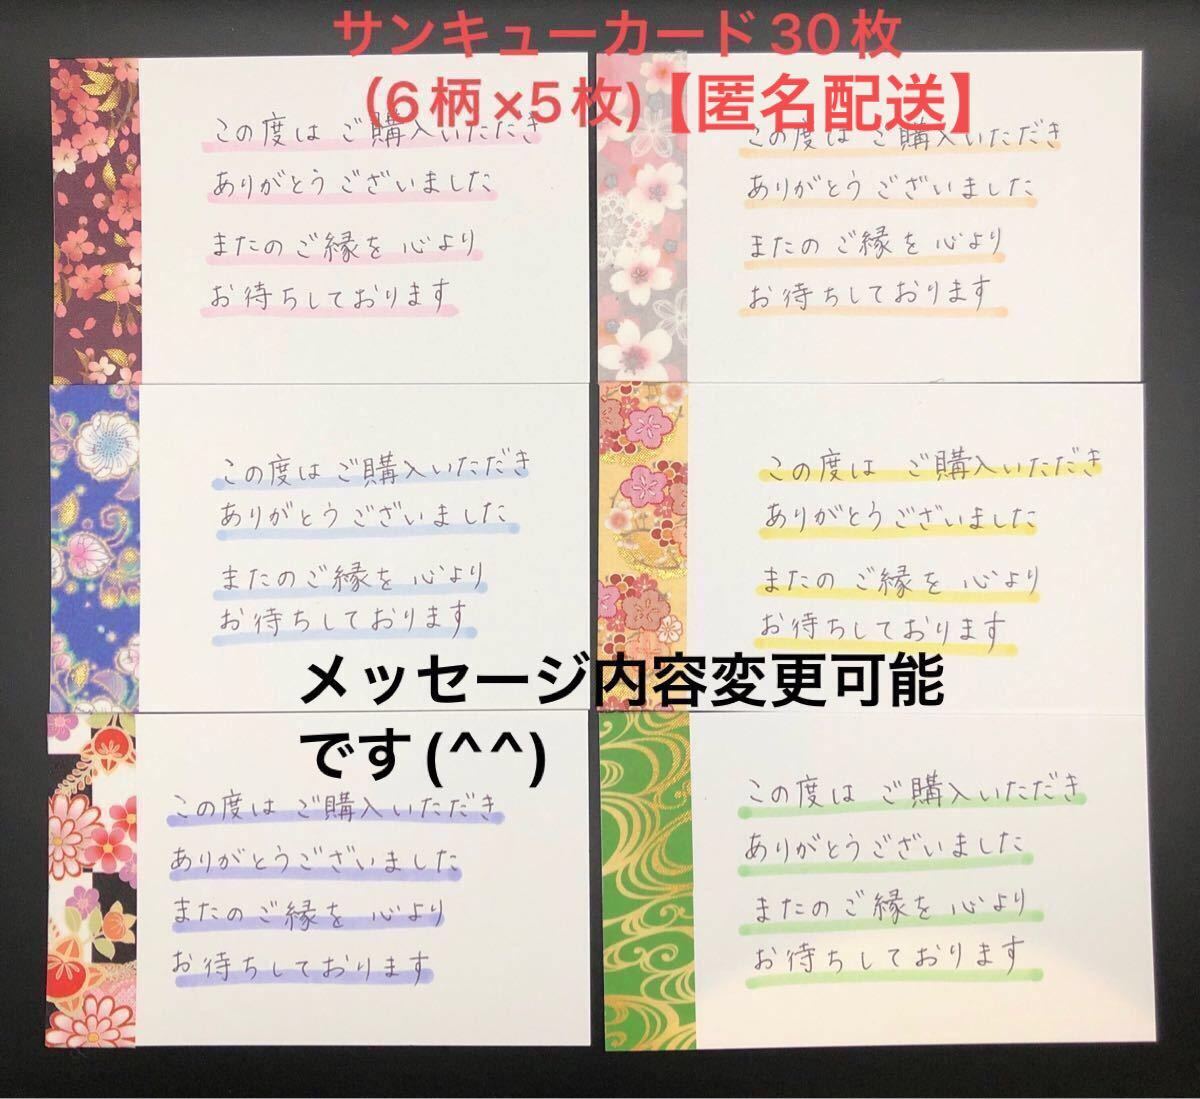 サンキューカード30枚
(6柄×5枚)【匿名配送】
この度は ご購入いただき
ありがとうございました
またのご縁を 心より
お待ちしております
この度は ご購入いただき
ありがとうございました
またのご縁を 心より
お待ちしております
この度は ご購入いただき
ありがとうございました
またのご縁を 心より
お待ちしております
この度は ご購入いただき
ありがとうございました
またのご縁を 心より
お待ちしております
メッセージ内容変更可能
です(^^)
この度は ご購入いただき
ありがとうございました
またのご縁を 心より
お待ちしております
この度は ご購入いただき
ありがとうございました
またのご縁を 心より
お待ちしております